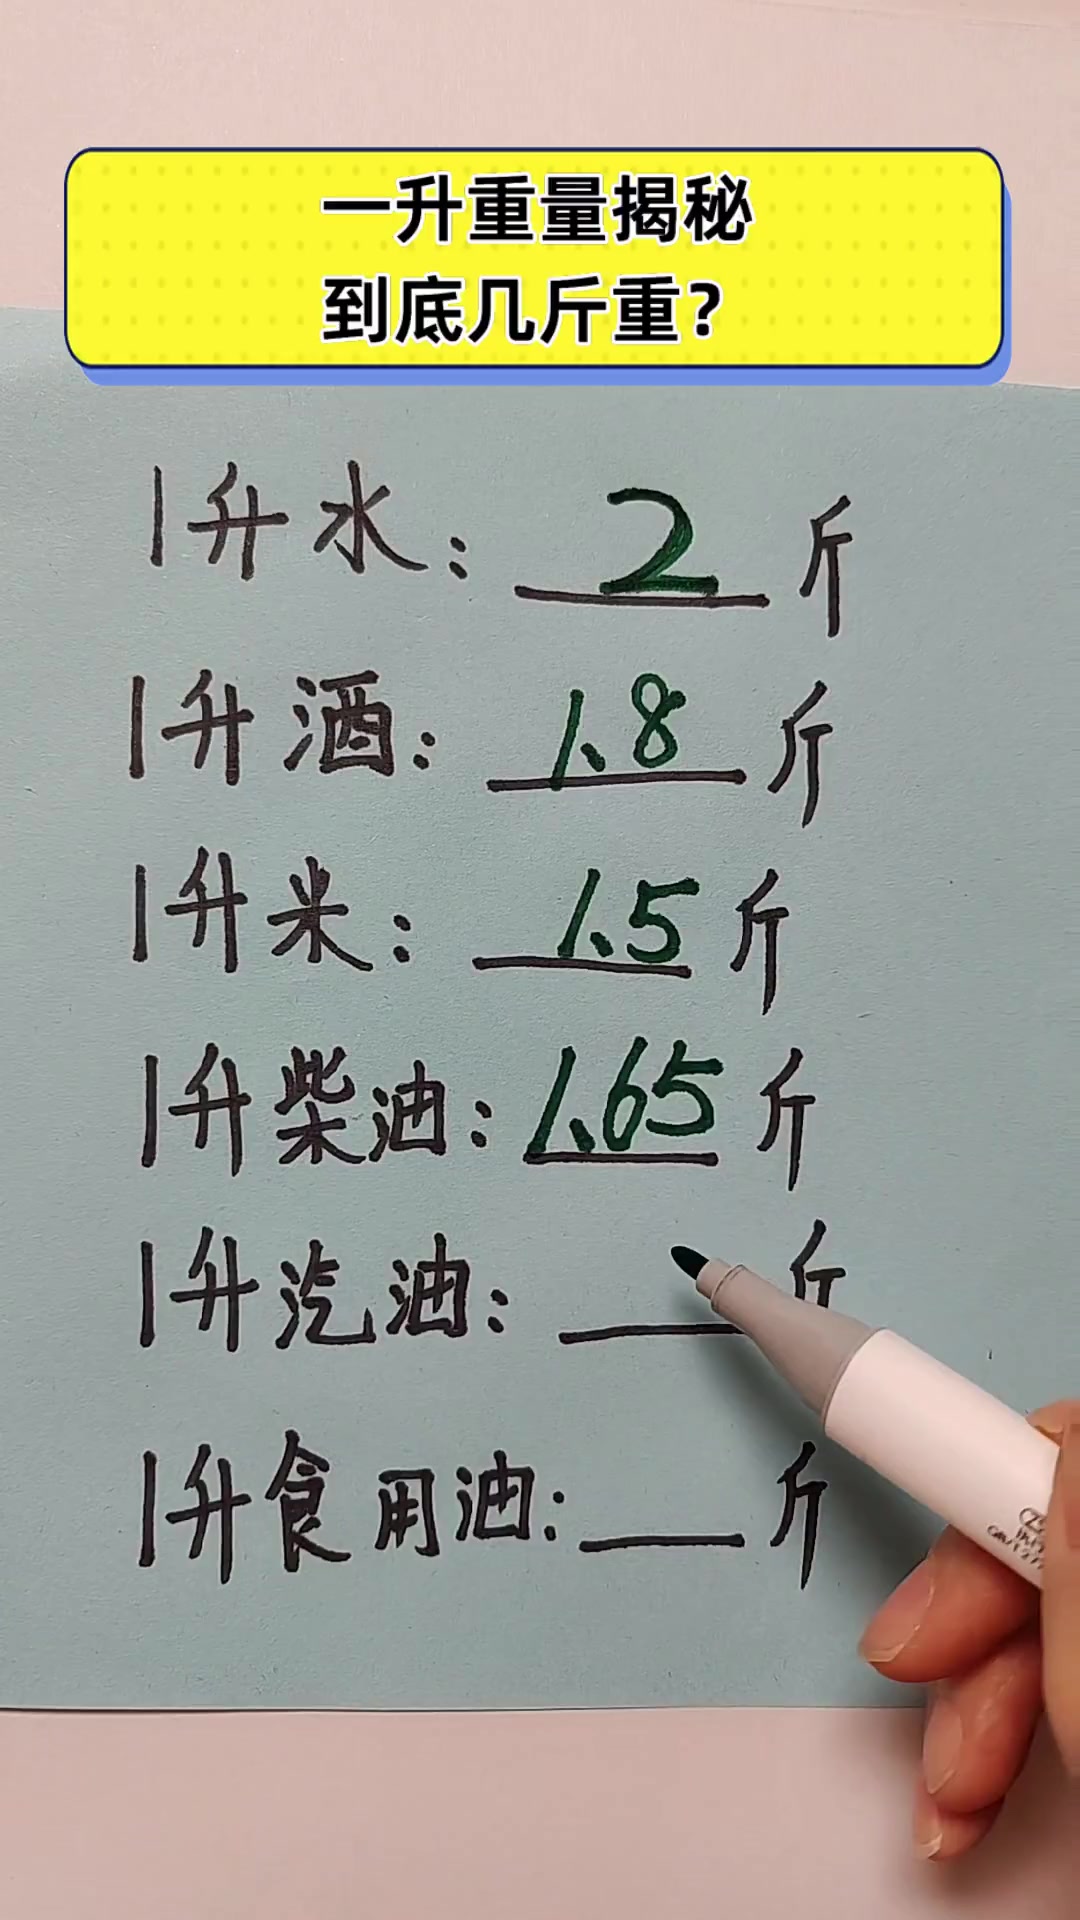 一升重量揭秘
到底几斤重？
1升水：2斤
1升酒：1.8斤
1升米：1.5斤
1升柴油：1.65斤
1升汽油：__斤
1升食用油：__斤